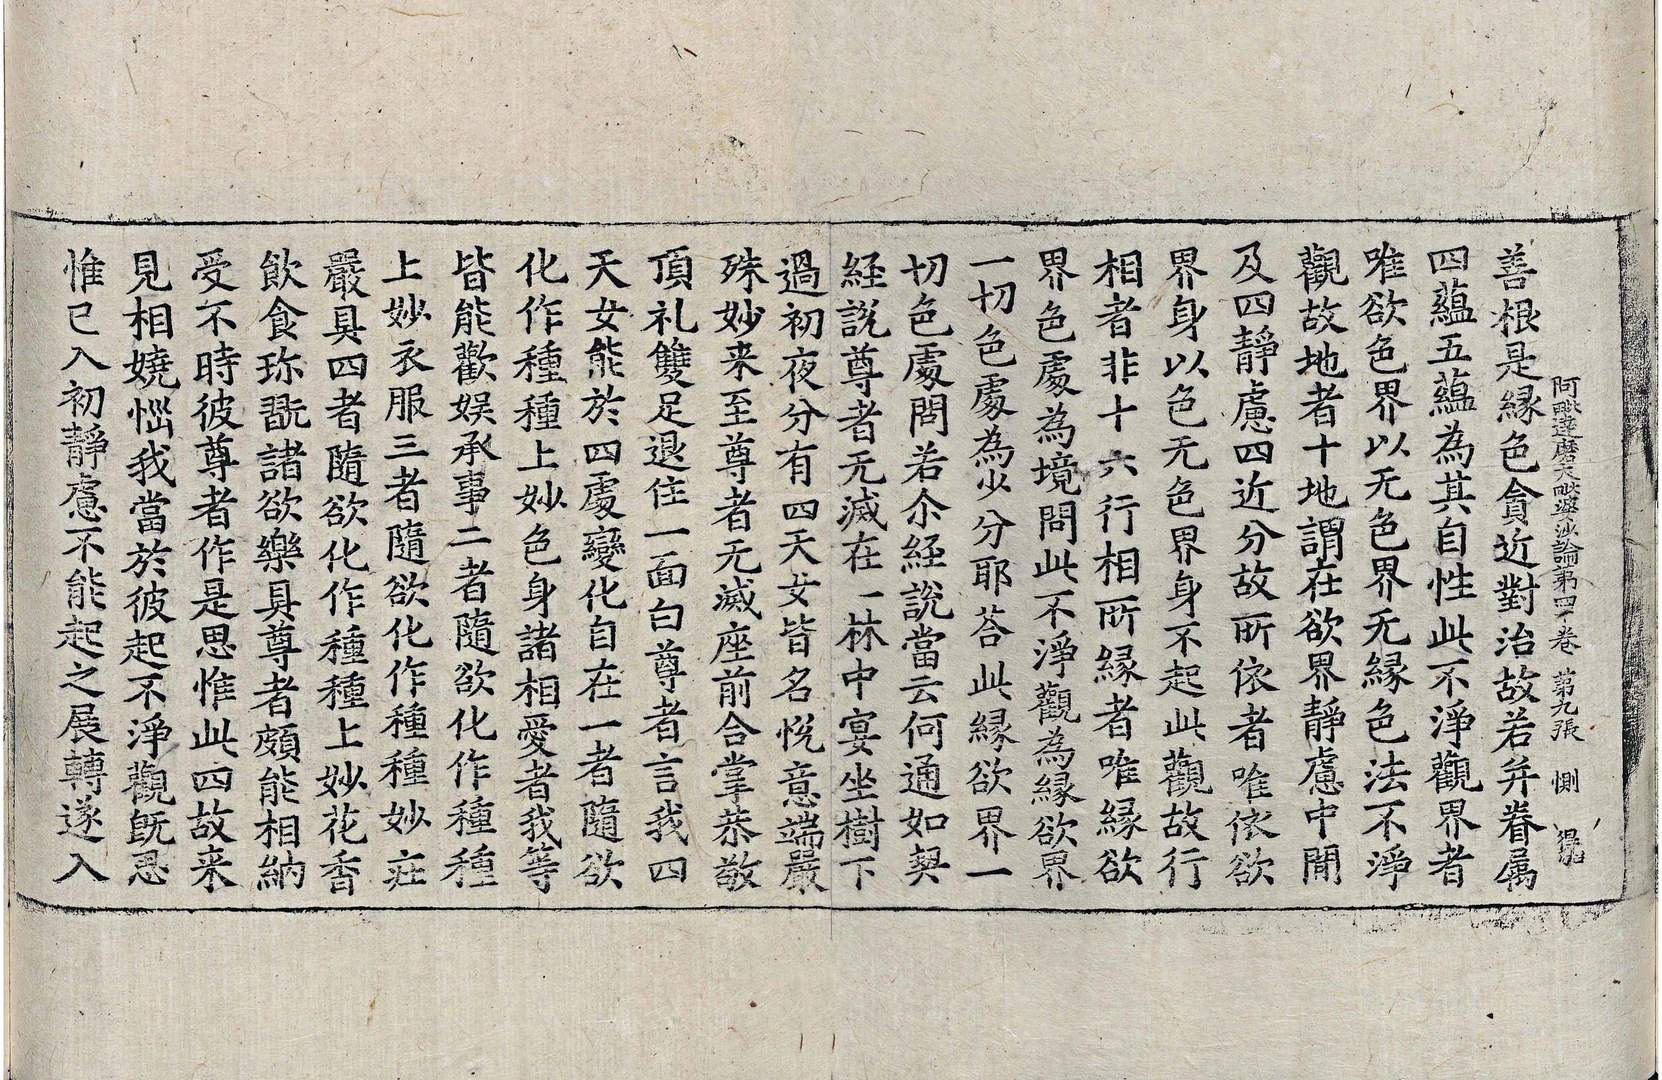 阿毗達磨大毗婆沙論第四十卷　第九張　惻
善根是緣色貪近對治故若并眷属
四蘊五蘊為其自性此不淨觀界者
唯欲色界以无色界无緣色法不淨
觀故地者十地謂在欲界靜慮中間
及四靜慮四近分故所依者唯依欲
界身以色无色界身不起此觀故行
相者非十六行相所緣者唯緣欲
界色處為境問此不淨觀為緣欲界
一切色處為少分耶荅此緣欲界一
切色處問若尒経說當云何通如契
経說尊者无滅在一林中宴坐樹下
過初夜分有四天女皆名悅意端嚴
殊妙来至尊者无滅座前合掌恭敬
頂礼雙足退住一面白尊者言我四
天女能於四處變化自在一者隨欲
化作種種上妙色身諸相愛者我等
皆能歡娱承事二者隨欲化作種種
上妙衣服三者隨欲化作種種妙莊
嚴具四者隨欲化作種種上妙花香
飲食珎翫諸欲樂具尊者頗能相納
受不時彼尊者作是思惟此四故来
見相嬈惱我當於彼起不淨觀旣思
惟已入初靜慮不能起之展轉遂入